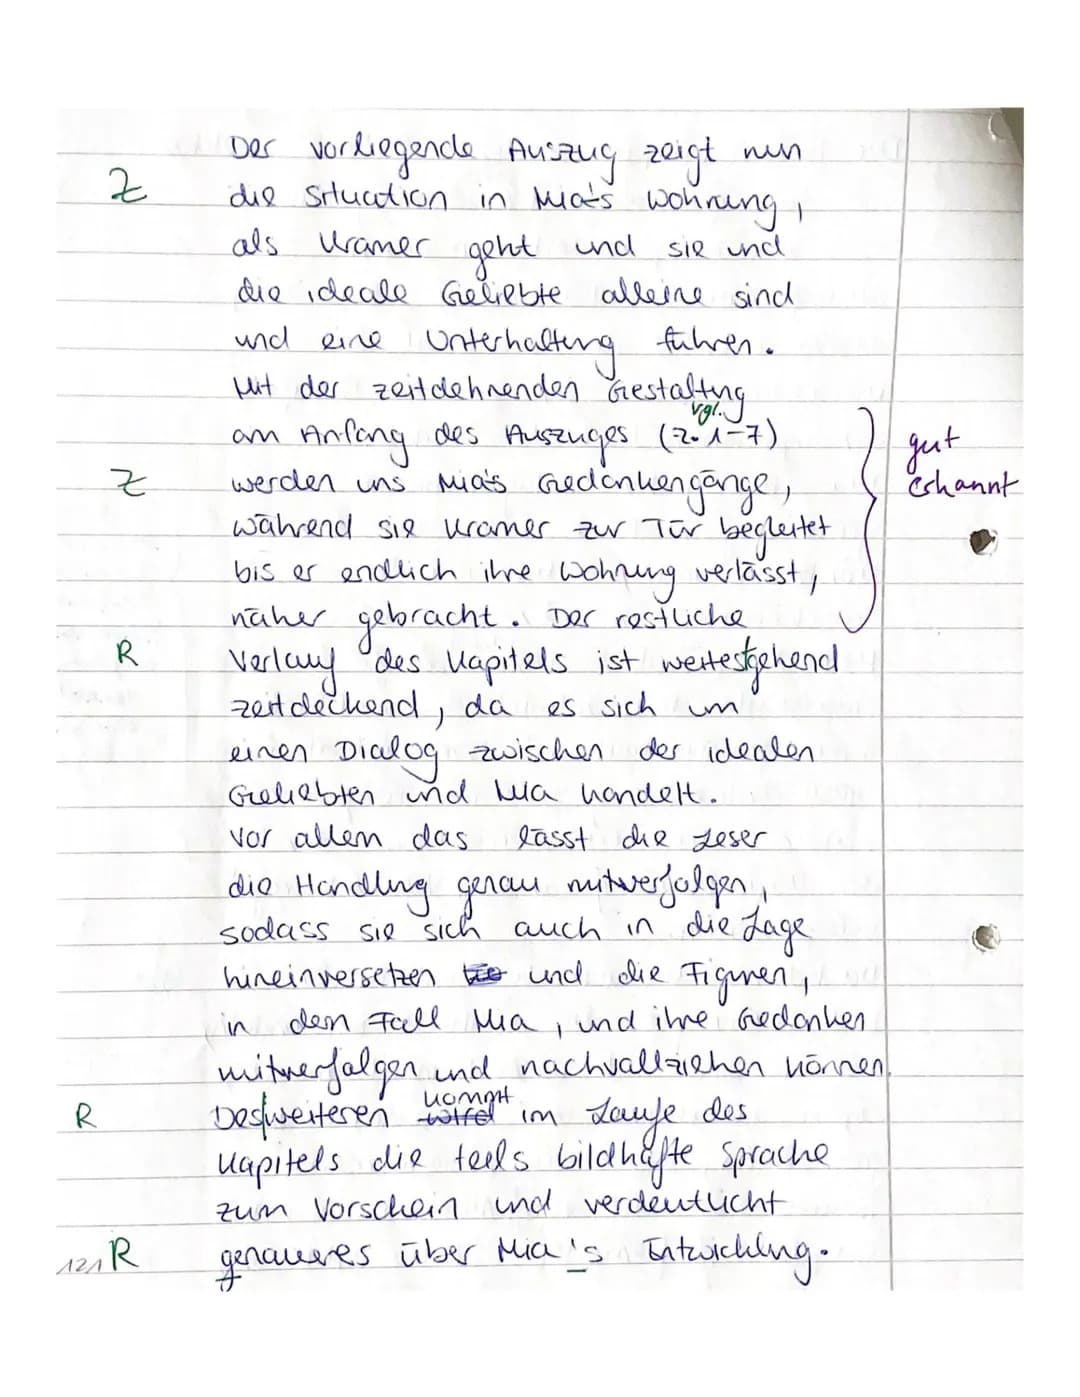 Der vorliegende Auszug zeigt nun
Z die Situation in Mia's Wohnung,
als Kramer geht und sie und
die ideale Geliebte alleine sind
und eine Unterhaltung führen.
Mit der zeitdehnenden Gestaltung
vgl.
am Anfang des Auszuges (Z. 1-7)
gut
Z werden uns Mia's Gedankengänge,
erkannt
während sie Kramer zur Tür begleitet
bis er endlich ihre Wohnung verlässt,
näher gebracht. Der restliche
R Verlauf des Kapitels ist weitestgehend
zeitdeckend, da es sich um
einen Dialog zwischen der idealen
Geliebten und Mia handelt.
Vor allem das lässt die Leser
die Handlung genau mitverfolgen,
sodass sie sich auch in die Lage
hineinversetzen und die Figuren,
in dem Fall Mia, und ihre Gedanken
mitverfolgen und nachvollziehen können.
kommt
R Desweiteren wird im Laufe des
Kapitels die teils bildhafte Sprache
zum Vorschein und verdeutlicht
121 R genaueres über Mia's Entwicklung.